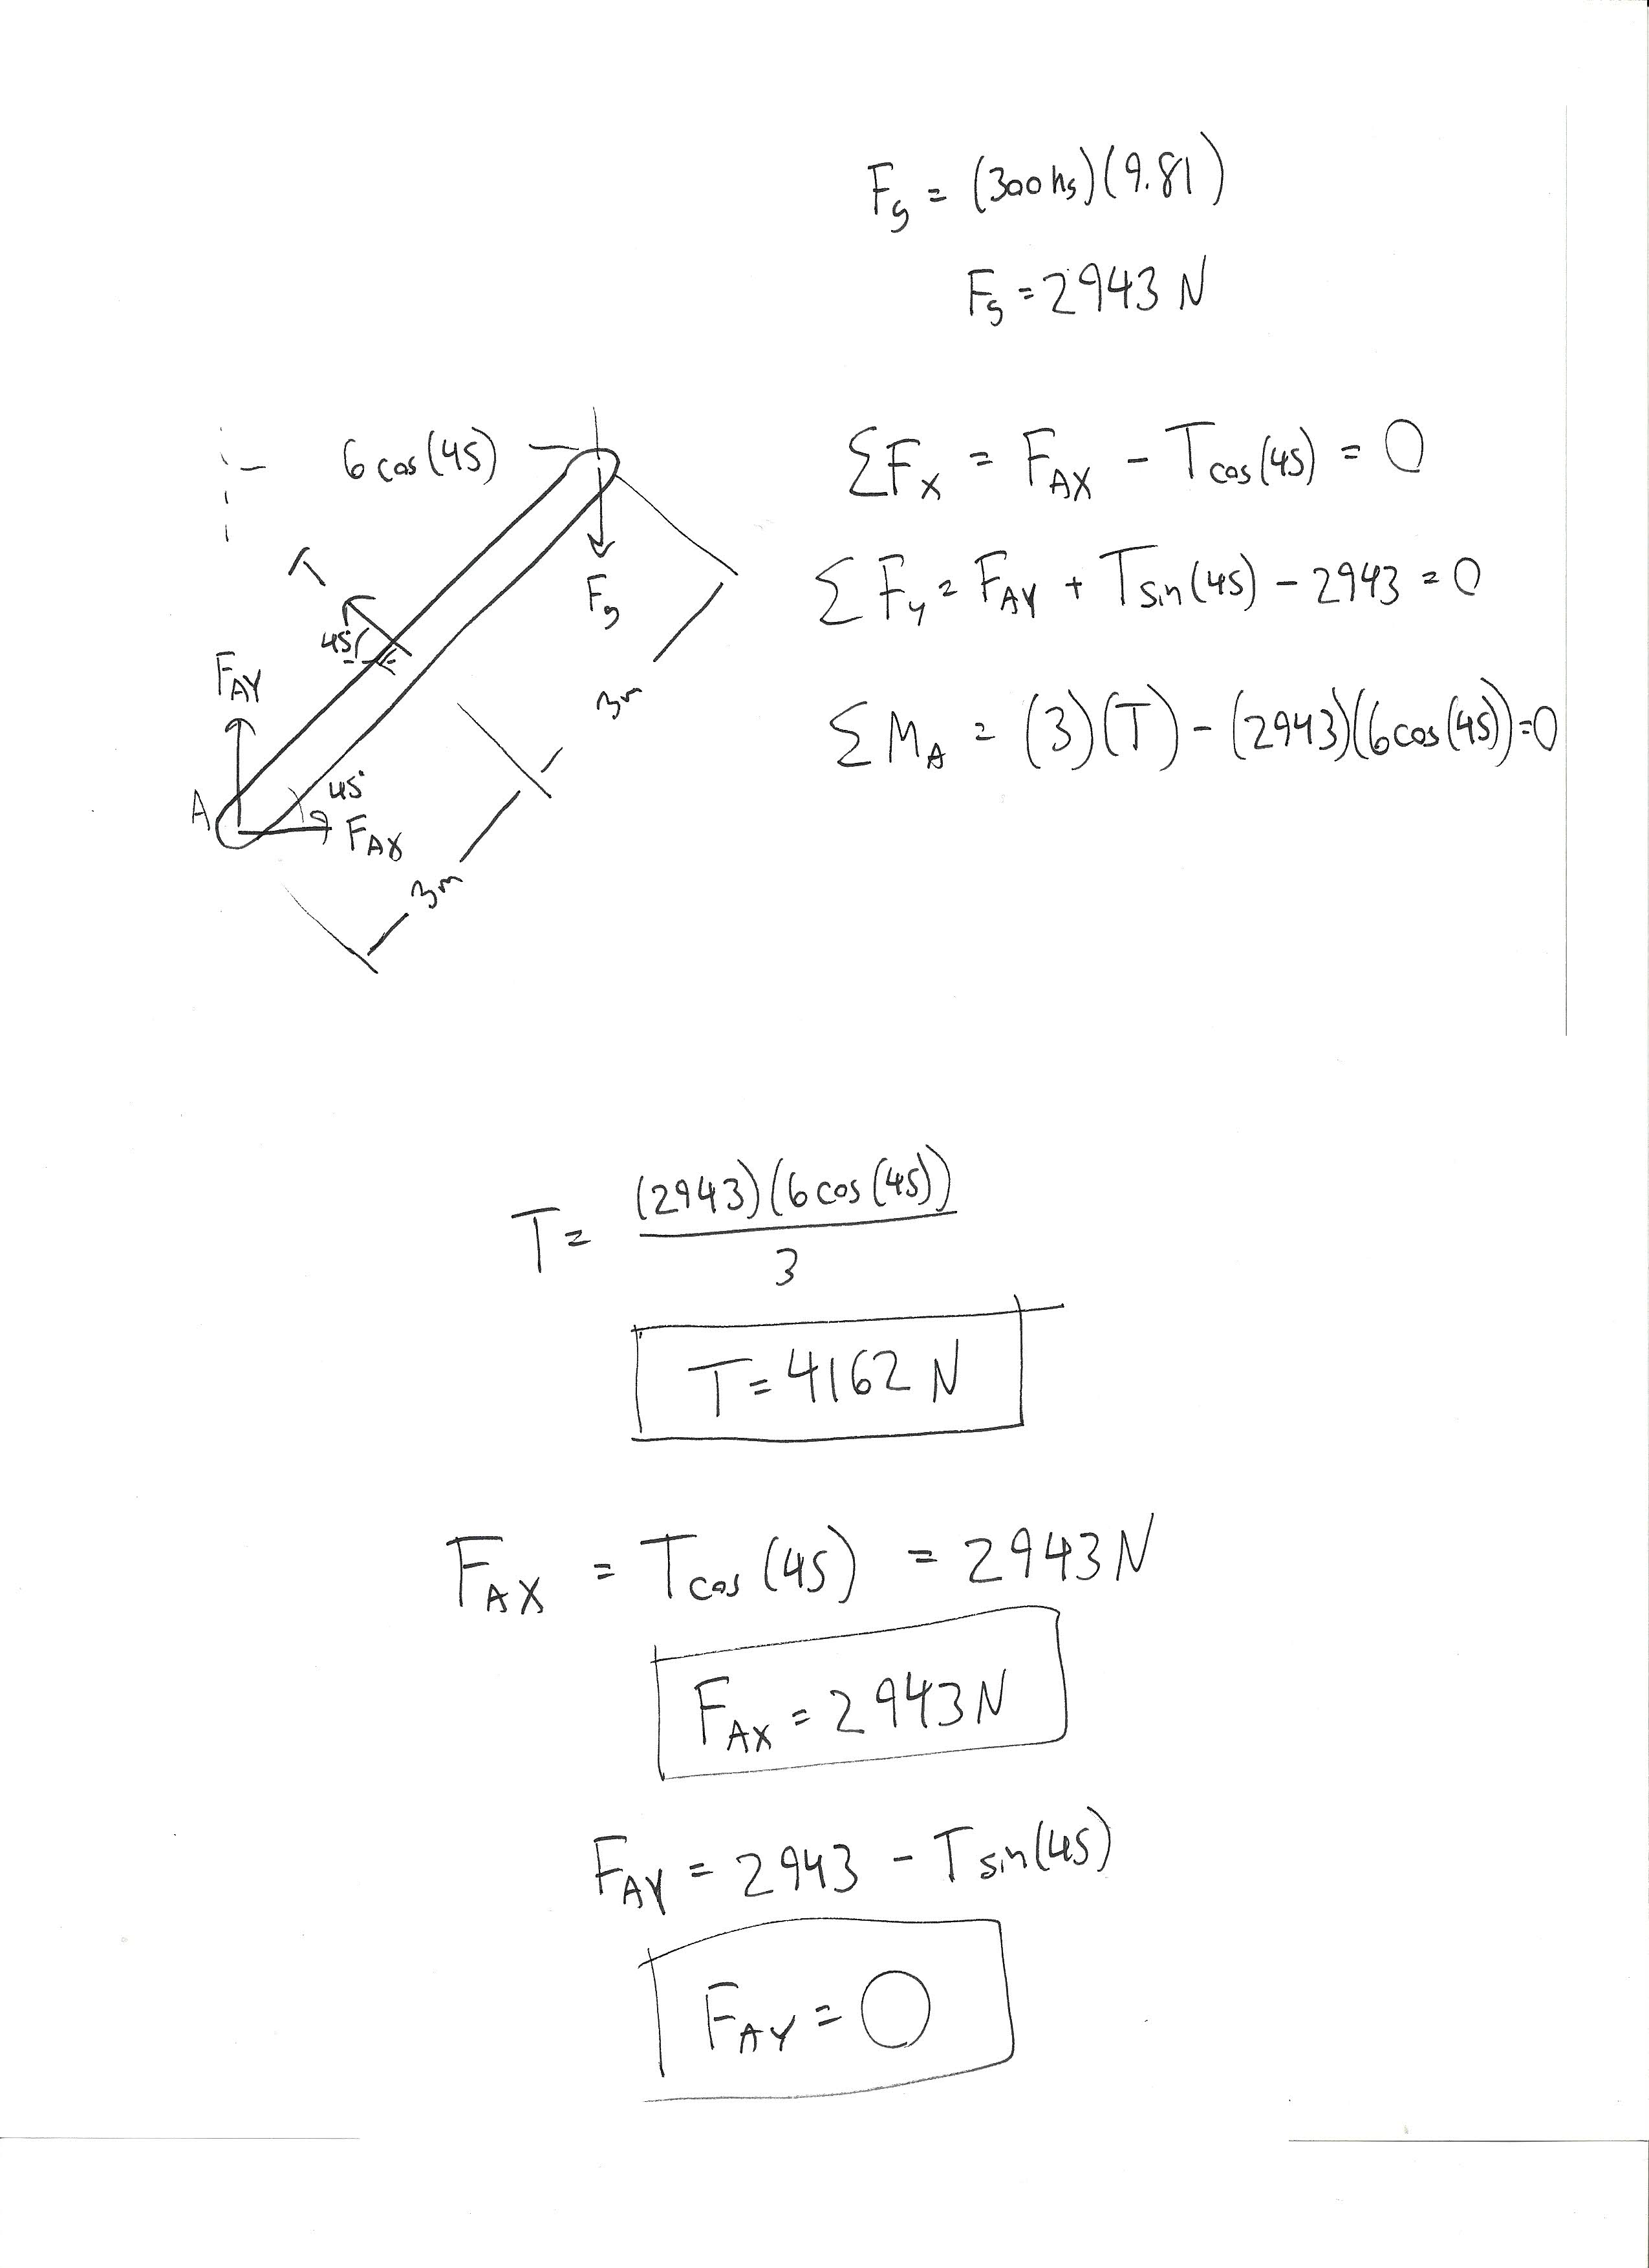 F_g = (300 kg)(9.81)
F_g = 2943 N
6 cos(45)
T
45°
F_g
F_AY
A
45°
F_AX
3m
3m
ΣF_X = F_AX - T cos(45) = 0
ΣF_y = F_AY + T sin(45) - 2943 = 0
ΣM_A = (3)(T) - (2943)(6 cos(45)) = 0
T = (2943)(6 cos(45))
3
T = 4162 N
F_AX = T cos(45) = 2943 N
F_AX = 2943 N
F_AY = 2943 - T sin(45)
F_AY = 0